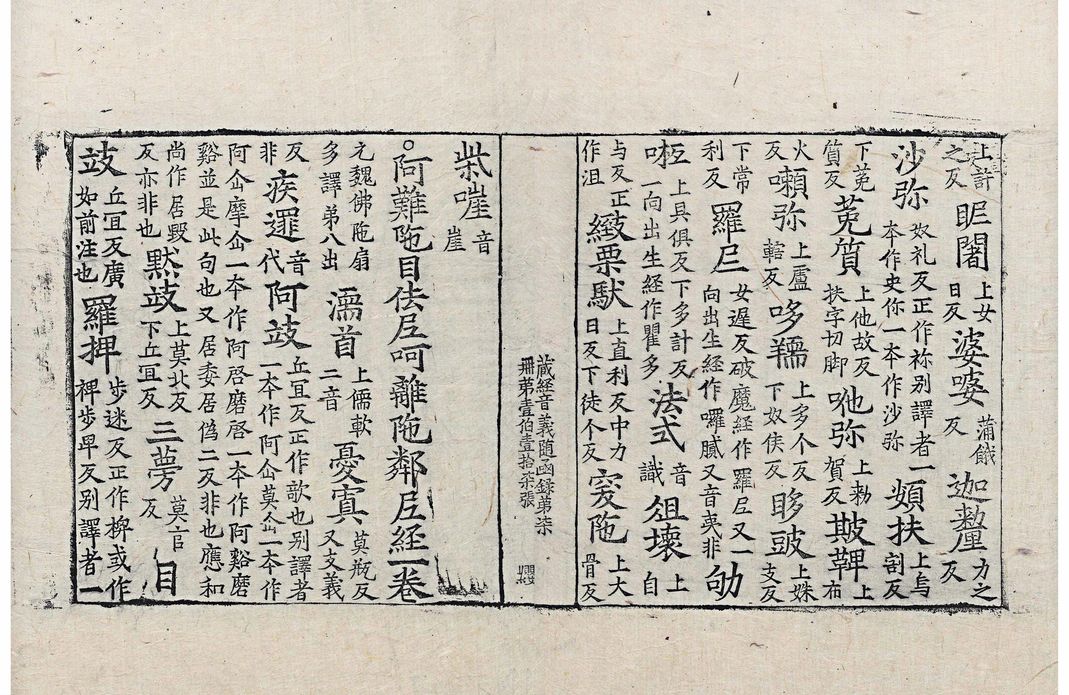 上許之反 眤闍 上女日反 婆㜑 蒲餓反 迦𨤲 力之反
沙弥 奴礼反正作祢别譯者一本作史你一本作沙弥 頞扶 上烏割反
下莵質反 莵質 上他故反扶字切脚 咃弥 上勑賀反 㱟鞞 上布
火反 頼弥 上盧轄反 哆𦏵 上多个反下奴侯反 眵豉 上姝支反
下常利反 羅𡰱 女遲反破魔經作羅𡰱又一向出生經作囉膩又音夷非 劬
上具俱反下多計反一向出生經作瞿多 法式 音識 俎壞 上自
与反正作沮 緻栗馱 上直利反中力日反下徒个反 窔陁 上大骨反
藏經音義随函録第柒
册 第壹伯壹拾柒張
祡嘊 音崖
阿難陁目佉𡰱呵離陁鄰𡰱經一卷
元魏佛陁扇多譯第八出 濡首 上儒軟二音 憂寘 莫瓶反又支義
反非 疾邏 音代 阿𢻃 丘宜反正作歌也别譯者一本作阿㕣莫㕣一本作
阿㕣摩㕣一本作阿啓磨啓一本作阿谿磨谿並是此句也又居委居偽二反非也應和
尚作居毁反亦非也 默𢻃 上莫北反下丘宜反 三夢 莫官反 目
𢻃 丘宜反廣如前注也 羅捭 步迷反正作椑或作稗步卑反别譯者一